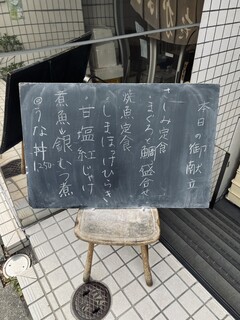 本日の御献立
さしみ定食
・まぐろ、鯛盛合せ
焼魚定食
・しまほっけひらき
・甘塩紅じゃけ
煮魚 銀むつ煮
◎うな丼 1,250-